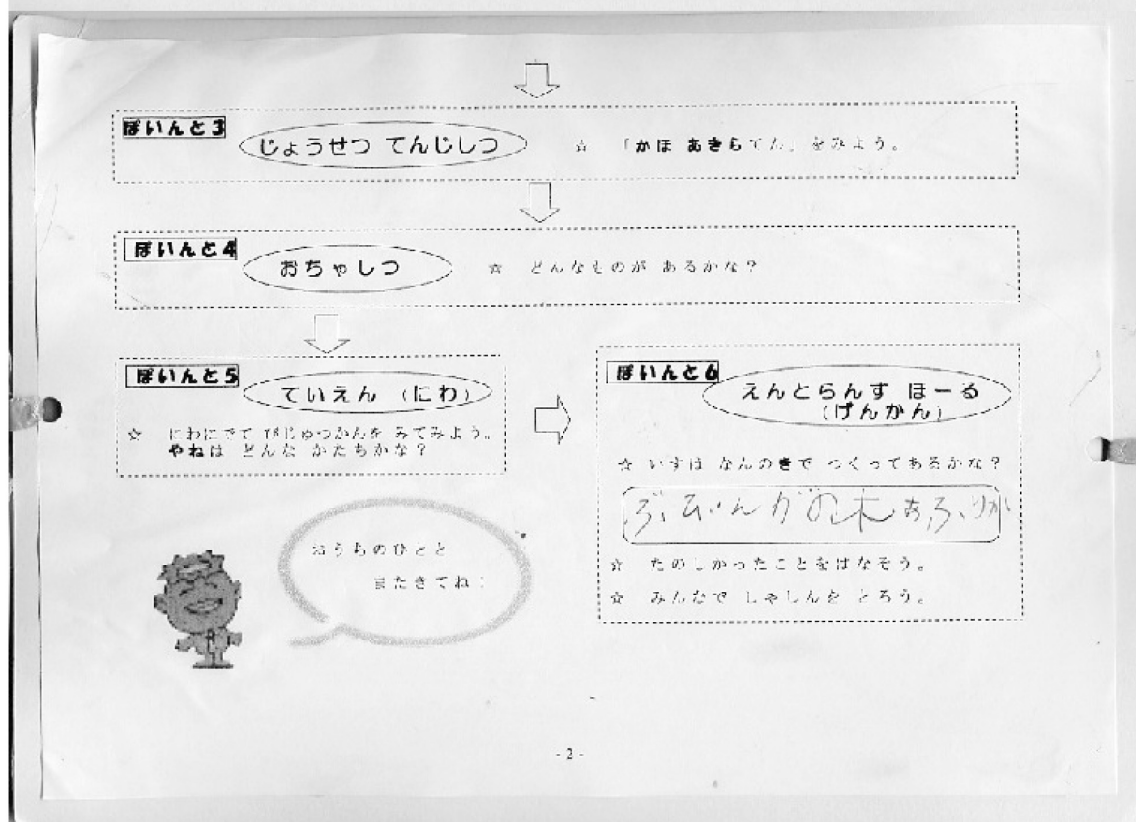 ぽいんと3
じょうせつ てんじしつ
☆ 「かほ あきらてん」をみよう。
ぽいんと4
おちゃしつ
☆ どんなものが あるかな？
ぽいんと5
ていえん (にわ)
☆ にわにでて びじゅつかんを みてみよう。
やねは どんな かたちかな？
ぽいんと6
えんとらんす ほーる
(げんかん)
☆ いすは なんのきで つくってあるかな？
☆ たのしかったことをはなそう。
☆ みんなで しゃしんを とろう。
おうちのひとと
またきてね！
- 2 -